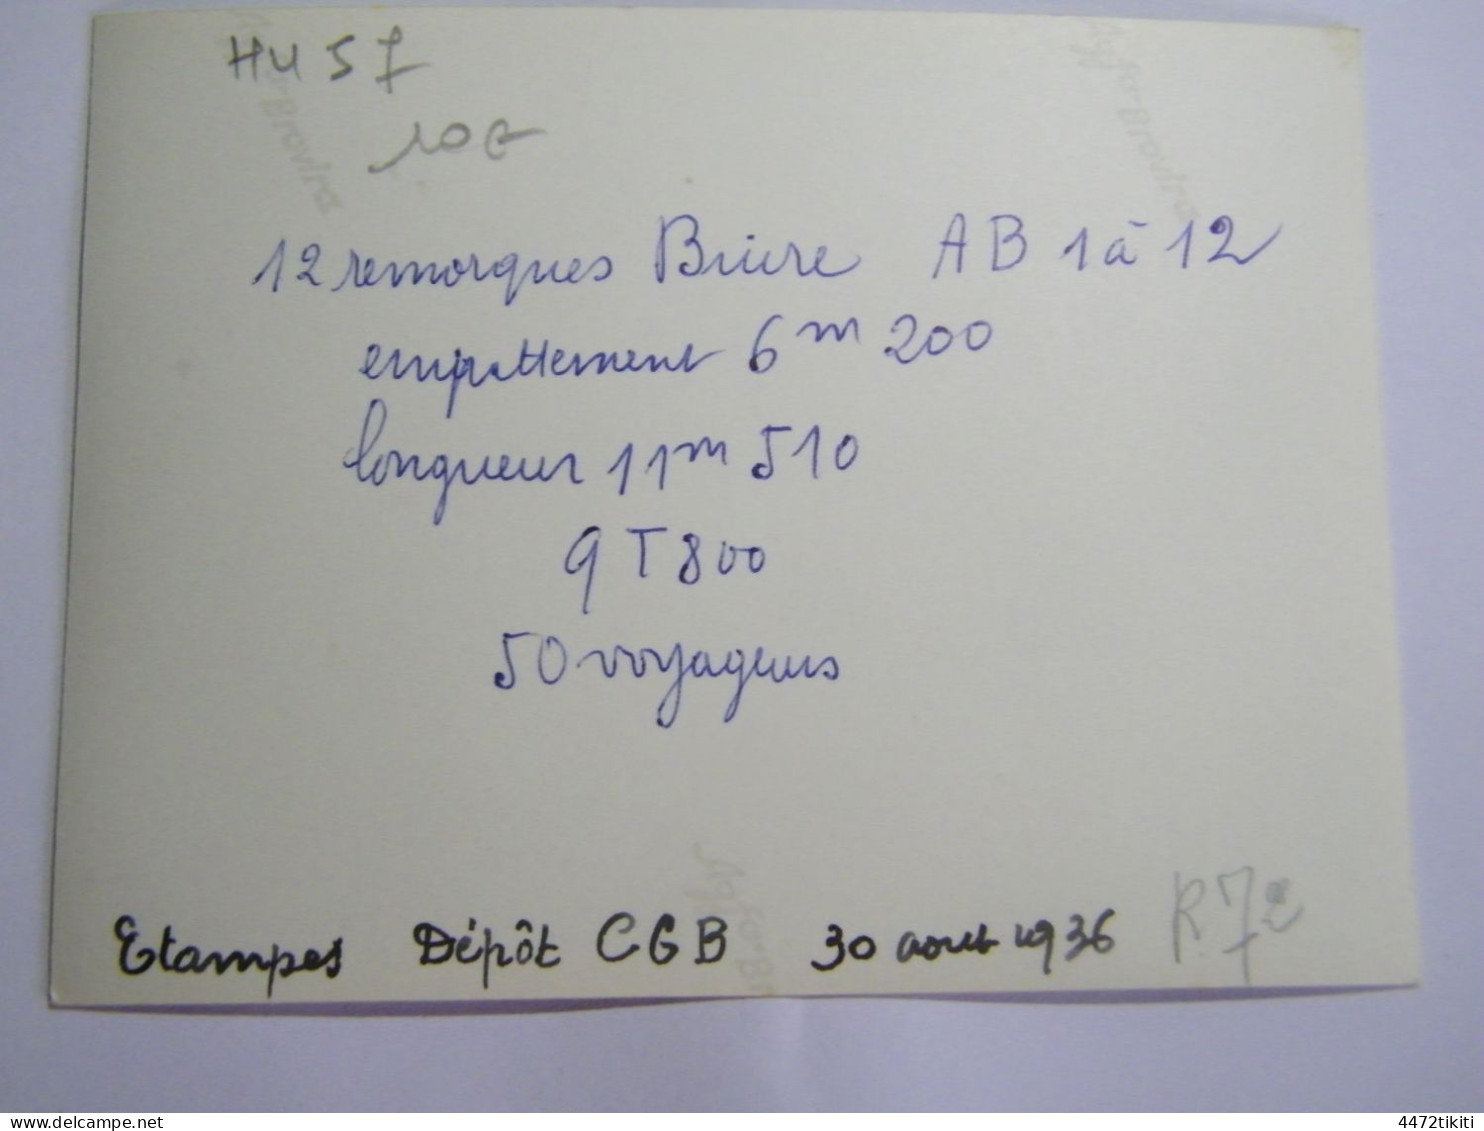 HU 57
10e
12 remorques Brière AB 1 à 12
empattement 6m 200
longueur 11m 510
9 T 800
50 voyageurs
Etampes Dépôt CGB 30 aout 1936 R.7e
delcampe.net
4472tikiti